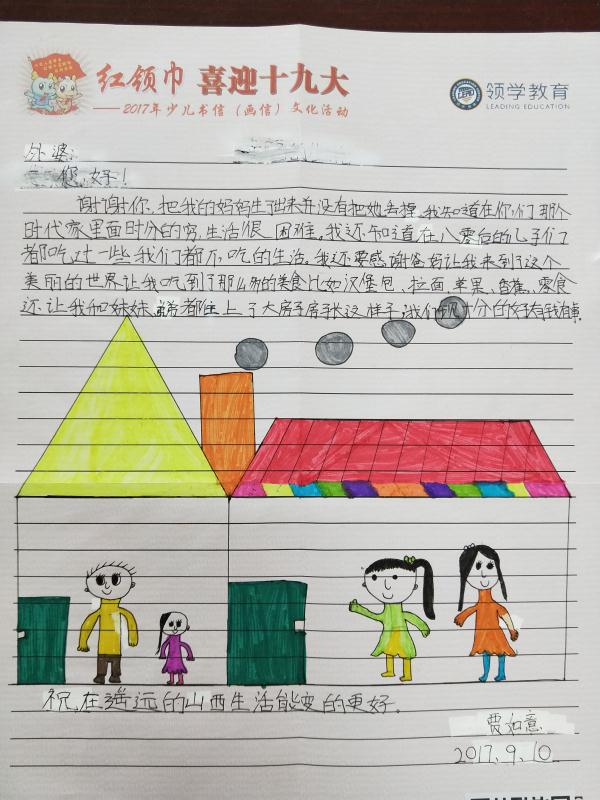 红领巾 喜迎十九大
——2017年少儿书信(画信)文化活动
领学教育
LEADING EDUCATION
外婆:
您,好!
谢谢你,把我的妈妈生出来并没有把她丢掉,我知道在你们那个
时代家里面时分的穷,生活很困难。我还知道在八零后的儿子们
都吃过一些我们都不吃的生活。我还要感谢爸妈让我来到了这个
美丽的世界让我吃到了那么多的美食比如汉堡包、拉面、苹果、香蕉、零食
还让我和妹妹、爸爸都住上了大房子房长这样子,我们
祝,在遥远的山西生活能变的更好。
贾如意
2017.9.10